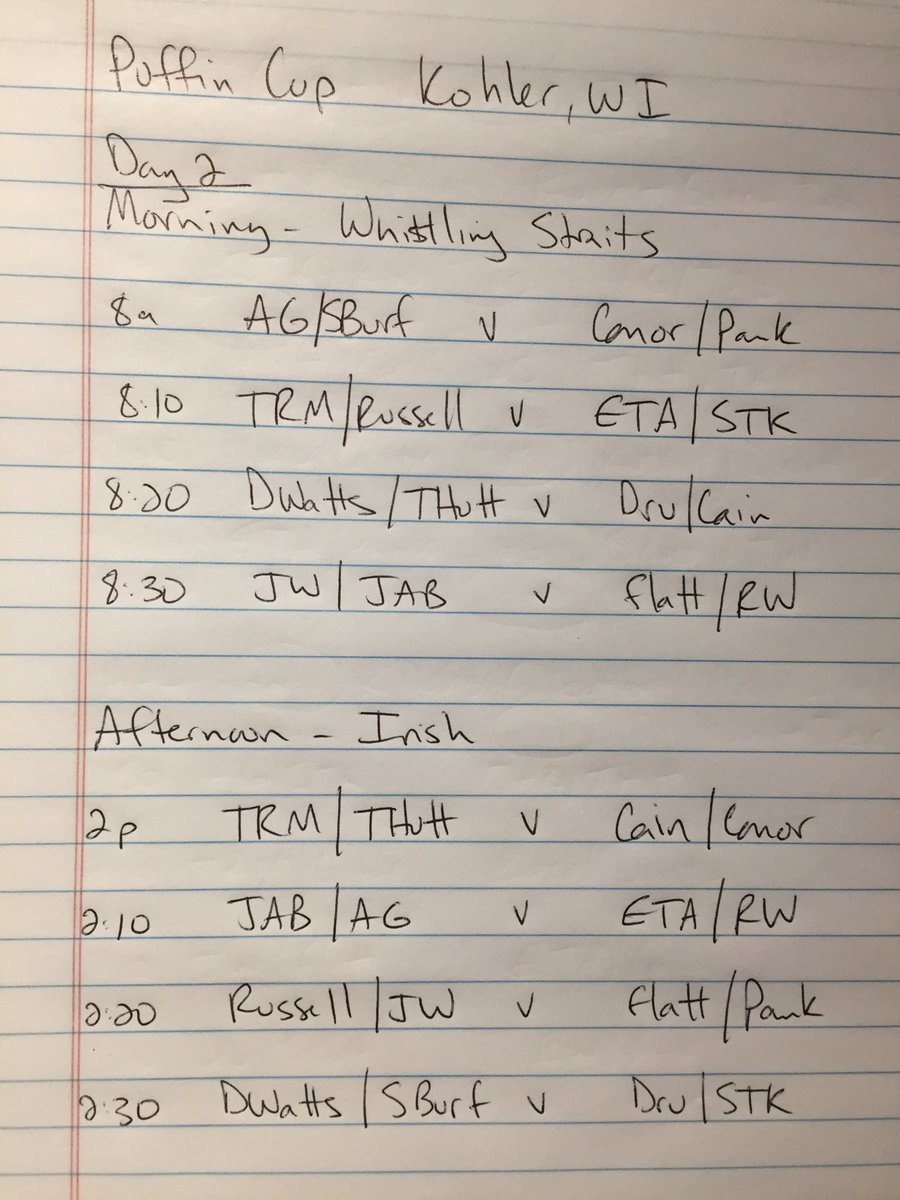 Puffin Cup Kohler, WI
Day 2
Morning - Whistling Straits
8a AG/SBurf v Conor/Pank
8:10 TRM/Russell v ETA/STK
8:20 DWatts/THutt v Dru/Cain
8:30 JW/JAB v Flatt/RW
Afternoon - Irish
2p TRM/THutt v Cain/Conor
2:10 JAB/AG v ETA/RW
2:20 Russell/JW v Flatt/Pank
2:30 DWatts/SBurf v Dru/STK